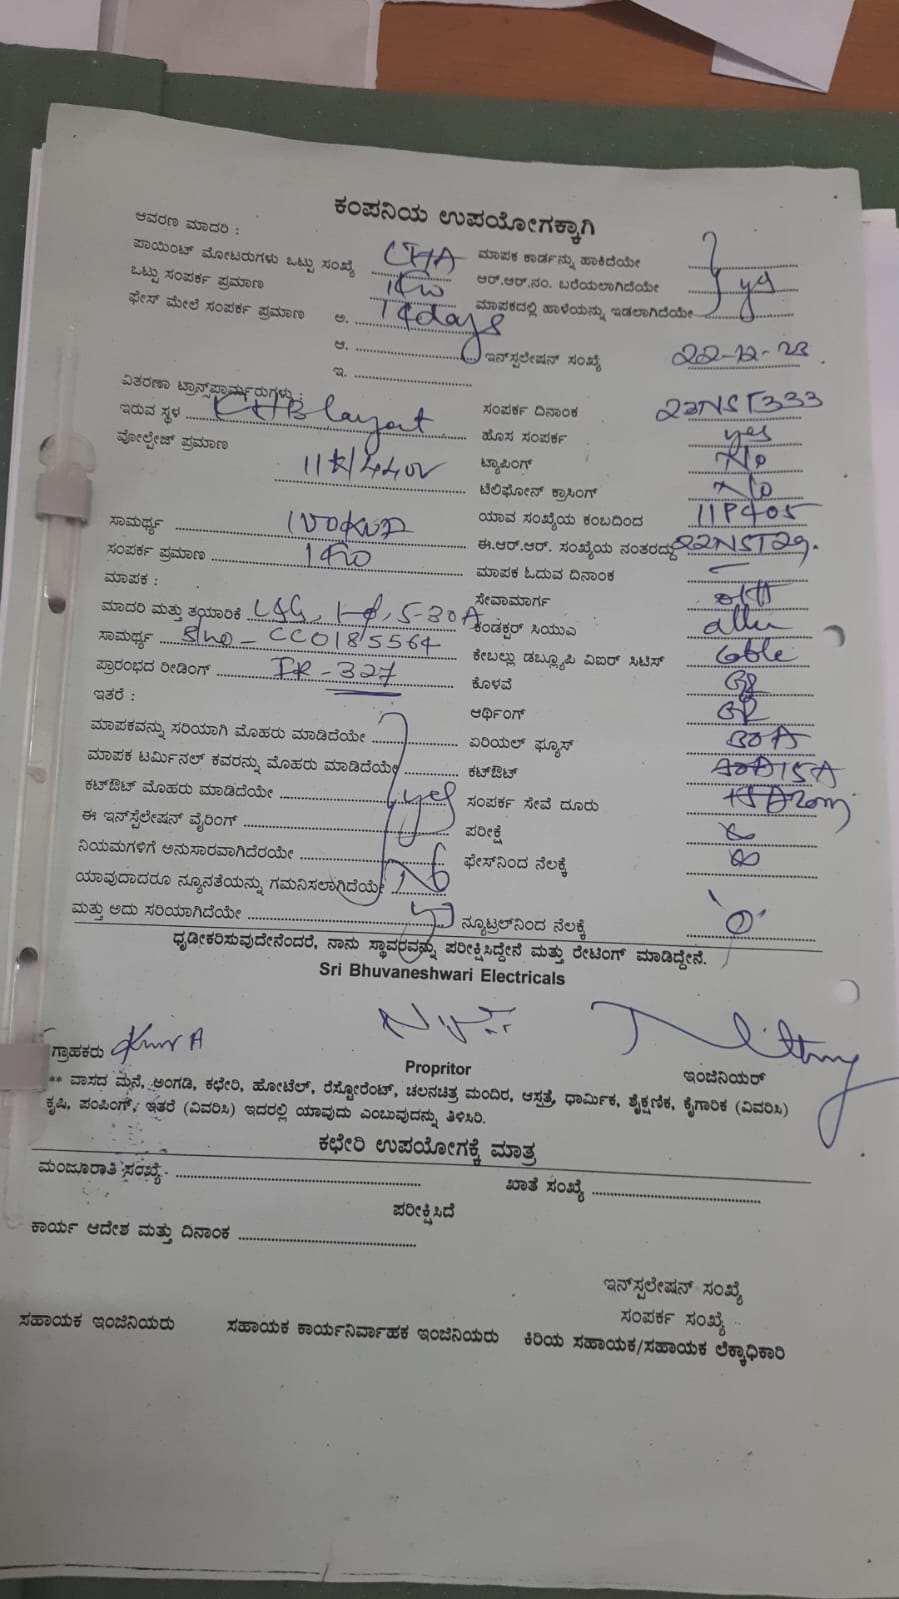 ಕಂಪನಿಯ ಉಪಯೋಗಕ್ಕಾಗಿ
ಆವರಣ ಮಾದರಿ :
ಪಾಯಿಂಟ್ ಮೋಟರುಗಳು ಒಟ್ಟು ಸಂಖ್ಯೆ ಮಾಪಕ ಕಾರ್ಡನ್ನು ಹಾಕಿದೆಯೇ
ಒಟ್ಟು ಸಂಪರ್ಕ ಪ್ರಮಾಣ 1KW ಆರ್.ಆರ್.ನಂ. ಬರೆಯಲಾಗಿದೆಯೇ yes
ಫೇಸ್ ಮೇಲೆ ಸಂಪರ್ಕ ಪ್ರಮಾಣ ಅ. 14days ಮಾಪಕದಲ್ಲಿ ಹಾಳೆಯನ್ನು ಇಡಲಾಗಿದೆಯೇ
ಆ. ಇನ್‌ಸ್ಪಲೇಷನ್ ಸಂಖ್ಯೆ 22-12-23
ಇ.
ವಿತರಣಾ ಟ್ರಾನ್ಸ್‌ಫಾರ್ಮರುಗಳು :
ಇರುವ ಸ್ಥಳ KHB layout ಸಂಪರ್ಕ ದಿನಾಂಕ 23NST333
ವೋಲ್ಟೇಜ್ ಪ್ರಮಾಣ ಹೊಸ ಸಂಪರ್ಕ yes
11K/440V ಟ್ಯಾಪಿಂಗ್ No
ಟೆಲಿಫೋನ್ ಕ್ರಾಸಿಂಗ್ No
ಸಾಮರ್ಥ್ಯ 100KVA ಯಾವ ಸಂಖ್ಯೆಯ ಕಂಬದಿಂದ 11P405
ಸಂಪರ್ಕ ಪ್ರಮಾಣ 1KW ಈ.ಆರ್.ಆರ್. ಸಂಖ್ಯೆಯ ನಂತರದ್ದು 22NST29.
ಮಾಪಕ : ಮಾಪಕ ಓದುವ ದಿನಾಂಕ
ಮಾದರಿ ಮತ್ತು ತಯಾರಿಕೆ L&G, 1-φ, 5-30A ಸೇವಾಮಾರ್ಗ o/H
ಸಾಮರ್ಥ್ಯ Slno - CC0185564 ಕಂಡಕ್ಟರ್ ಸಿಯುಎ
ಪ್ರಾರಂಭದ ರೀಡಿಂಗ್ IR - 327 ಕೇಬಲ್ಲು ಡಬ್ಲ್ಯೂಪಿ ವಿಐರ್ ಸಿಟಿಸ್ Cable
ಇತರೆ : ಕೊಳವೆ
ಆರ್ಥಿಂಗ್
ಮಾಪಕವನ್ನು ಸರಿಯಾಗಿ ಮೊಹರು ಮಾಡಿದೆಯೇ ಏರಿಯಲ್ ಫ್ಯೂಸ್ 30A
ಮಾಪಕ ಟರ್ಮಿನಲ್ ಕವರನ್ನು ಮೊಹರು ಮಾಡಿದೆಯೇ ಕಟ್‌ಔಟ್ 15A
ಕಟ್‌ಔಟ್ ಮೊಹರು ಮಾಡಿದೆಯೇ yes ಸಂಪರ್ಕ ಸೇವೆ ದೂರು 20m
ಈ ಇನ್‌ಸ್ಪೆಲೇಷನ್ ವೈರಿಂಗ್ ಪರೀಕ್ಷೆ ∞
ನಿಯಮಗಳಿಗೆ ಅನುಸಾರವಾಗಿದೆರಯೇ ಫೇಸ್‌ನಿಂದ ನೆಲಕ್ಕೆ ∞
ಯಾವುದಾದರೂ ನ್ಯೂನತೆಯನ್ನು ಗಮನಿಸಲಾಗಿದೆಯೇ No
ಮತ್ತು ಅದು ಸರಿಯಾಗಿದೆಯೇ ನ್ಯೂಟ್ರಲ್‌ನಿಂದ ನೆಲಕ್ಕೆ '0'
ಧೃಡೀಕರಿಸುವುದೇನೆಂದರೆ, ನಾನು ಸ್ಥಾವರವನ್ನು ಪರೀಕ್ಷಿಸಿದ್ದೇನೆ ಮತ್ತು ರೇಟಿಂಗ್ ಮಾಡಿದ್ದೇನೆ.
Sri Bhuvaneshwari Electricals
ಗ್ರಾಹಕರು Kumar A Propritor ಇಂಜಿನಿಯರ್
** ವಾಸದ ಮನೆ, ಅಂಗಡಿ, ಕಛೇರಿ, ಹೋಟೆಲ್, ರೆಸ್ಟೋರೆಂಟ್, ಚಲನಚಿತ್ರ ಮಂದಿರ, ಆಸ್ಪತ್ರೆ, ಧಾರ್ಮಿಕ, ಶೈಕ್ಷಣಿಕ, ಕೈಗಾರಿಕ (ವಿವರಿಸಿ)
ಕೃಷಿ, ಪಂಪಿಂಗ್, ಇತರೆ (ವಿವರಿಸಿ) ಇದರಲ್ಲಿ ಯಾವುದು ಎಂಬುವುದನ್ನು ತಿಳಿಸಿರಿ.
ಕಛೇರಿ ಉಪಯೋಗಕ್ಕೆ ಮಾತ್ರ
ಮಂಜೂರಾತಿ ಸಂಖ್ಯೆ ಖಾತೆ ಸಂಖ್ಯೆ
ಪರೀಕ್ಷಿಸಿದೆ
ಕಾರ್ಯ ಆದೇಶ ಮತ್ತು ದಿನಾಂಕ
ಇನ್‌ಸ್ಪಲೇಷನ್ ಸಂಖ್ಯೆ
ಸಂಪರ್ಕ ಸಂಖ್ಯೆ
ಸಹಾಯಕ ಇಂಜಿನಿಯರು ಸಹಾಯಕ ಕಾರ್ಯನಿರ್ವಾಹಕ ಇಂಜಿನಿಯರು ಕಿರಿಯ ಸಹಾಯಕ/ಸಹಾಯಕ ಲೆಕ್ಕಾಧಿಕಾರಿ